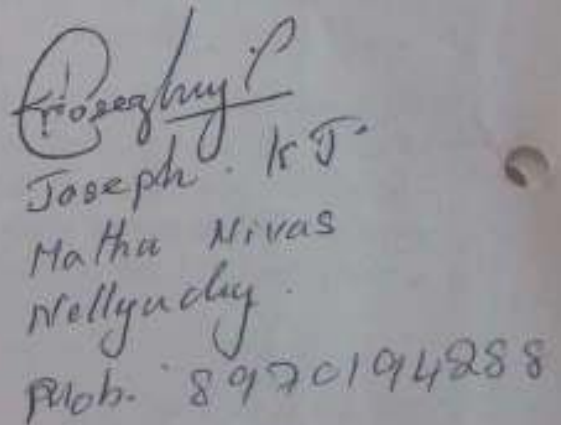 Joseph . K J
Matha Nivas
Nellyady .
Mob. 8970194288